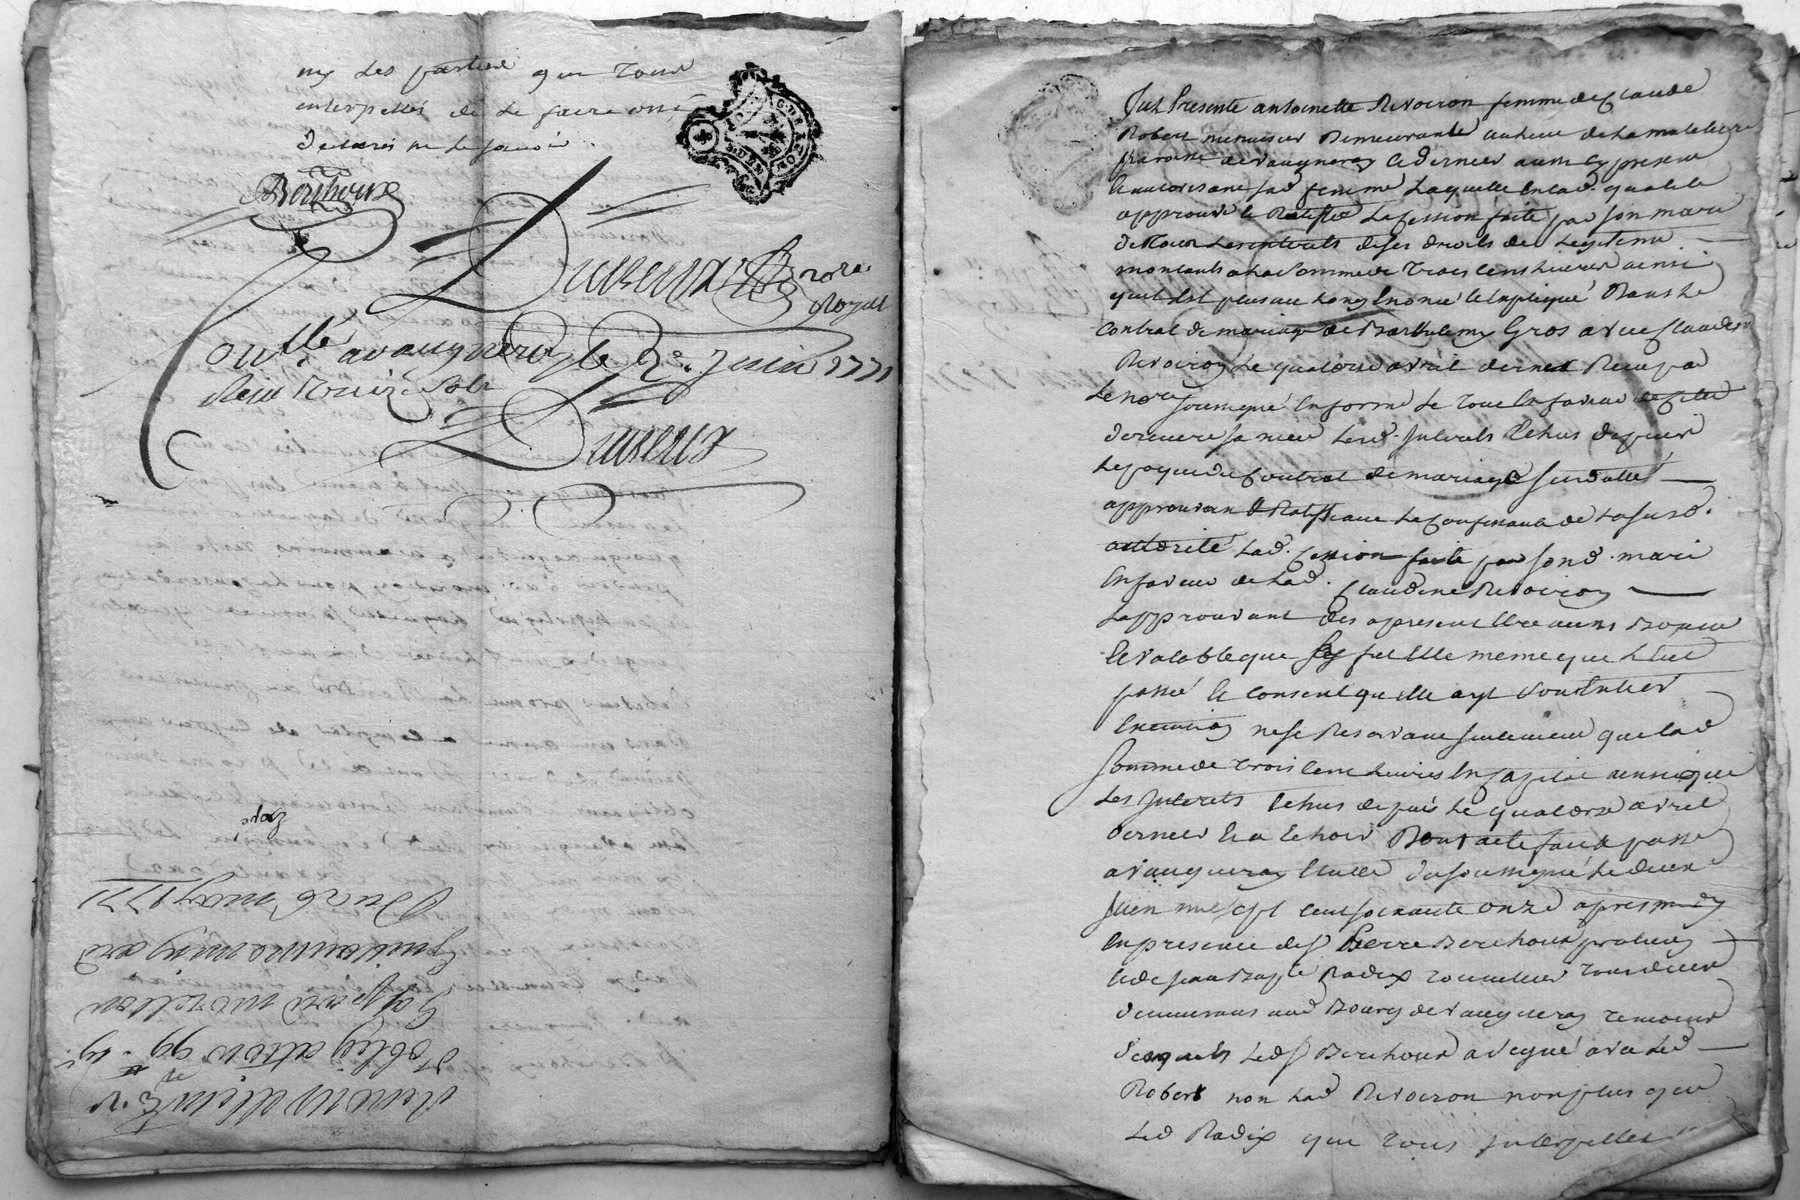 ny des parties que tous
interpellés de le faire ont
declarés ne le scavoir
Berthoux
nore
Royal
Con.lle a vaugneray le 2e Juin 1771
Recu treize sols
Duvieux
Zapé
Du 26 may 1771
Guillaume mingard
Gaspard morellon
d'obligation 99
Fut Presente antoinette Revoiron femme de Claude
Robert menuisier Demeurante au lieu de la maletiere
paroisse de vaugneray ce dernier aussi cy present
et autorisant sad. femme Laquelle en lad. qualité
approuve et Ratiffie La Cession faite par son mari
de tous les interets de ses droits de Legitime
montants a la Somme de trois cens livres ainsi
qu'il est plus au long Enoncé et Expliqué Dans Le
Contrat de mariage de Barthelemy Gros avec Claudine
Revoiron Le quatorze avril dernier Recu par
Le nore soussigné En forme Le tout En faveur de cette
derniere sa niece Lesd. interets Echus depuis
Le jour du Contrat de mariage susdatté
approuvan & Ratiffiant Le Consentant de La susd.
autorité Lad. Cession faite par sond. mari
En faveur de Lad. Claudine Revoiron
Lapprouvant des apresent Etre aussi Bonne
et valable que Si fut Elle meme que L'eut
passé et consent qu'elle ayt son Entier
Execution ne se Reservant seulement que lad
Somme de trois cens livres En Capital ainsi que
Les interets Echus depuis Le quatorze avril
dernier et a Echoir Dont acte fait & passé
a vaugneray Etude du soussigné Le deux
Juin mil sept cent soixante onze apres midy
En presence de Sr Pierre Berthoux praticien
et de Jean Bapte Radix tonnelier tous deux
demeurans aud Bourg de vaugneray temoins
desquels Led Sr Berthoux a signé avec Led
Robert non Lad Revoiron non plus que
Led Radix que tous interpellés